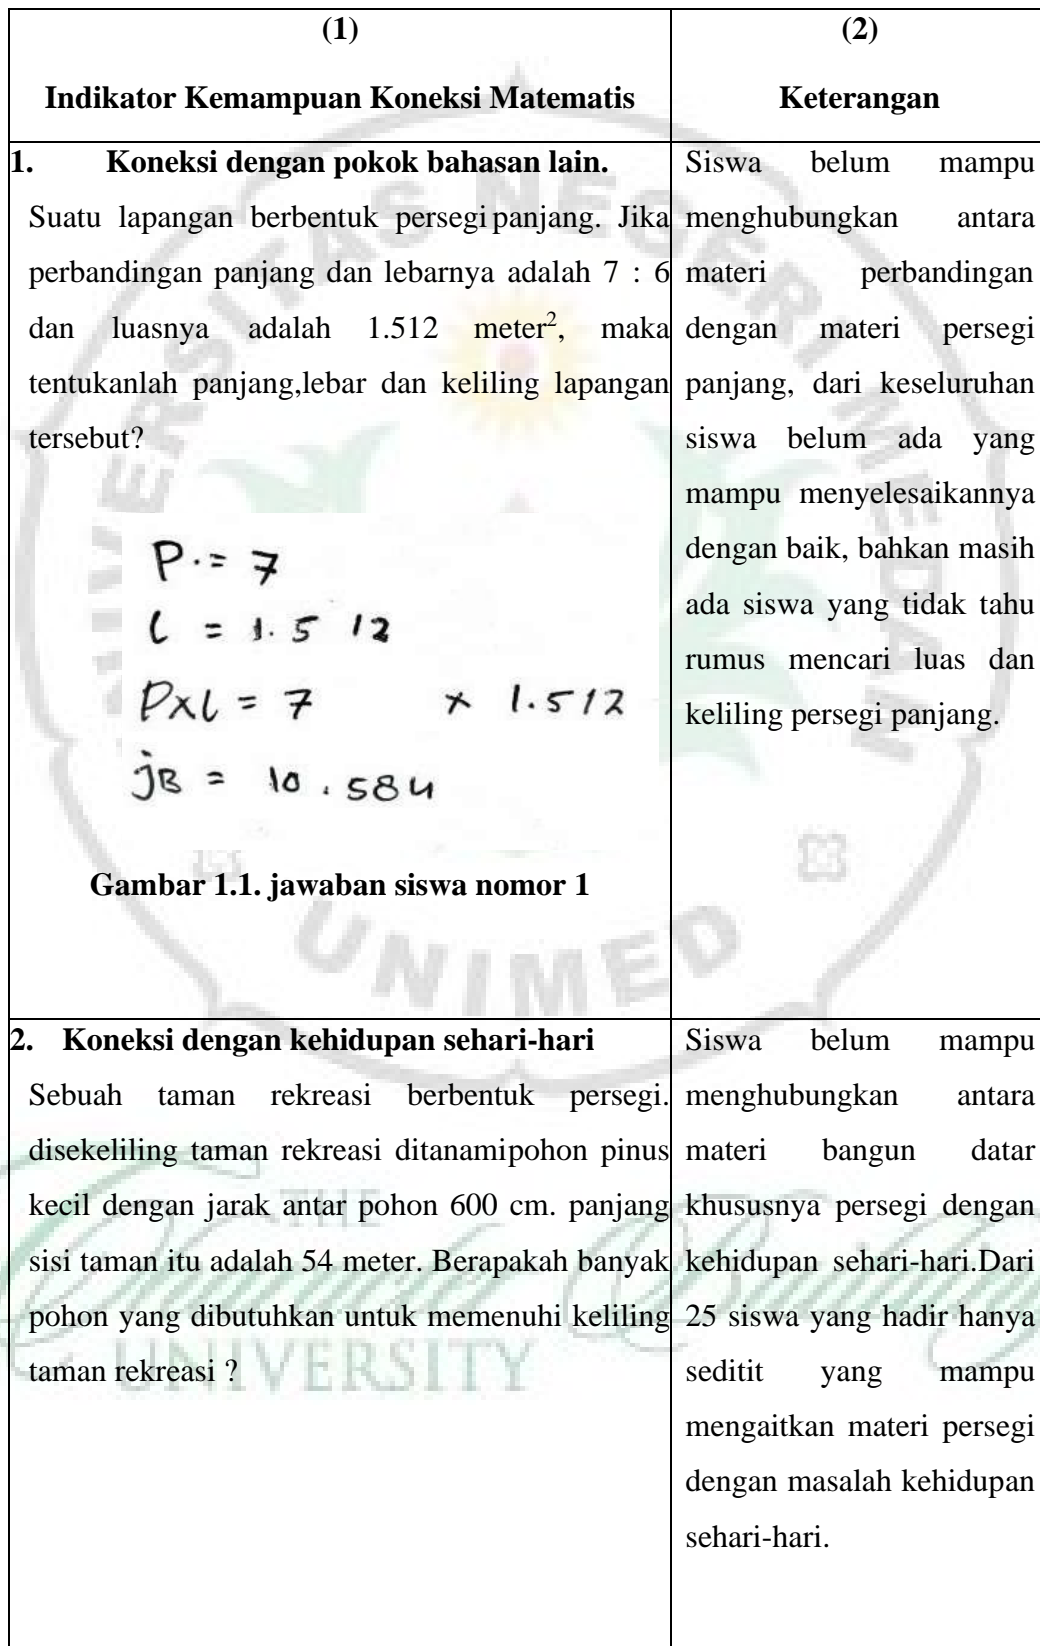 (1)
Indikator Kemampuan Koneksi Matematis
(2)
Keterangan
1. Koneksi dengan pokok bahasan lain.
Suatu lapangan berbentuk persegi panjang. Jika
perbandingan panjang dan lebarnya adalah 7 : 6
dan luasnya adalah 1.512 meter², maka
tentukanlah panjang,lebar dan keliling lapangan
tersebut?
P.= 7
l = 1.512
Pxl = 7 x 1.512
jB = 10.584
Gambar 1.1. jawaban siswa nomor 1
Siswa belum mampu
menghubungkan antara
materi perbandingan
dengan materi persegi
panjang, dari keseluruhan
siswa belum ada yang
mampu menyelesaikannya
dengan baik, bahkan masih
ada siswa yang tidak tahu
rumus mencari luas dan
keliling persegi panjang.
2. Koneksi dengan kehidupan sehari-hari
Sebuah taman rekreasi berbentuk persegi.
disekeliling taman rekreasi ditanamipohon pinus
kecil dengan jarak antar pohon 600 cm. panjang
sisi taman itu adalah 54 meter. Berapakah banyak
pohon yang dibutuhkan untuk memenuhi keliling
taman rekreasi ?
Siswa belum mampu
menghubungkan antara
materi bangun datar
khususnya persegi dengan
kehidupan sehari-hari.Dari
25 siswa yang hadir hanya
seditit yang mampu
mengaitkan materi persegi
dengan masalah kehidupan
sehari-hari.
UNIVERSITAS NEGERI MEDAN
UNIMED
THE
Character Building
UNIVERSITY